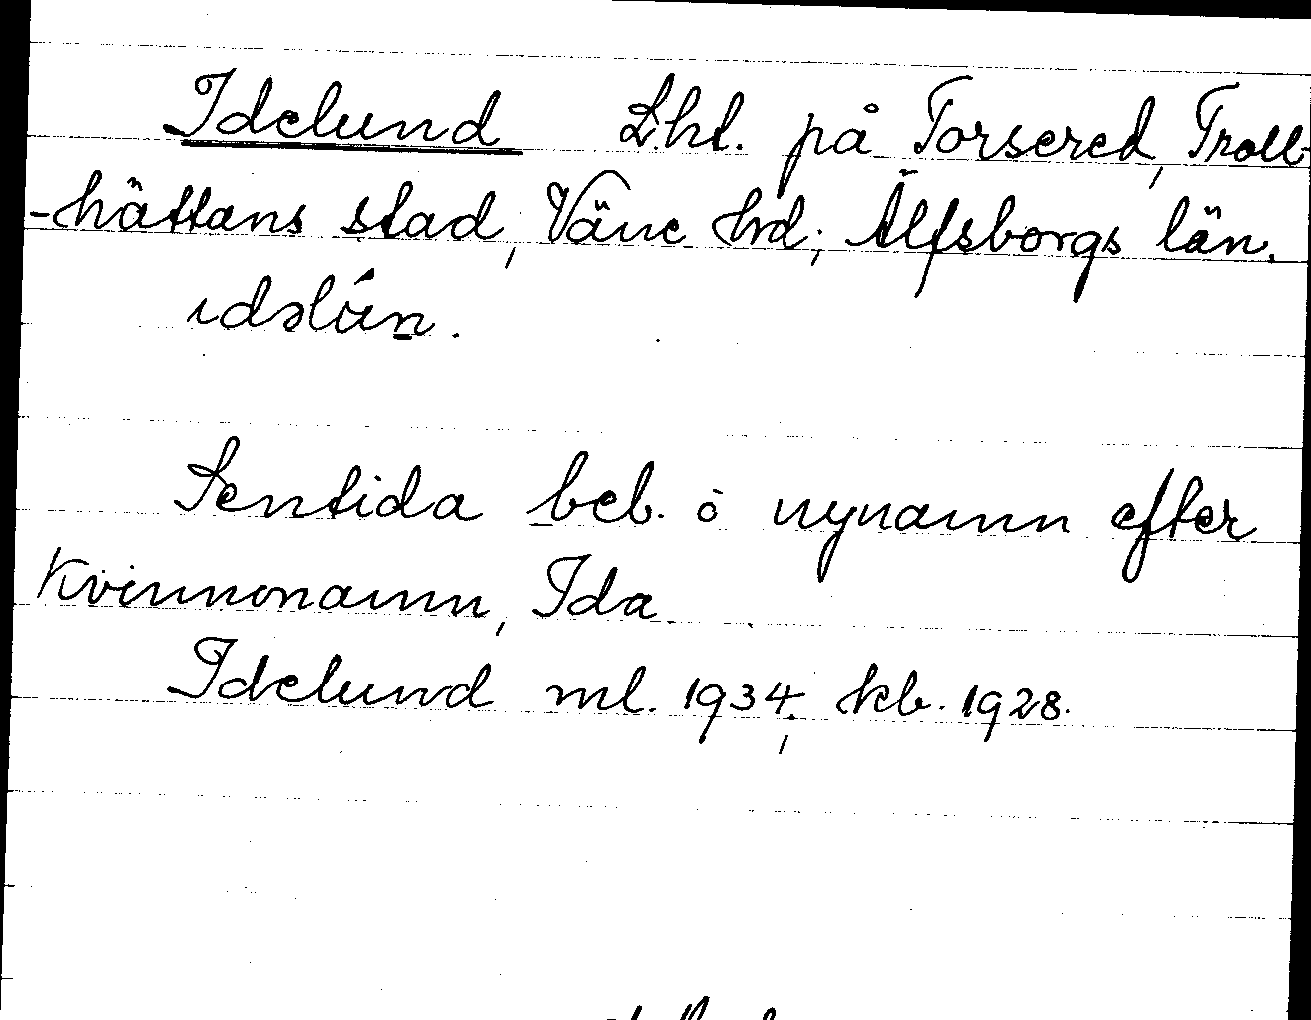 Idelund Lht. på Torsered, Troll-
-hättans stad, Väne hrd; Älfsborgs län.
ıdəlún.
Sentida beb. o nynamn efter
Kvinnonamn, Ida
Idelund ml. 1934; kb. 1928.